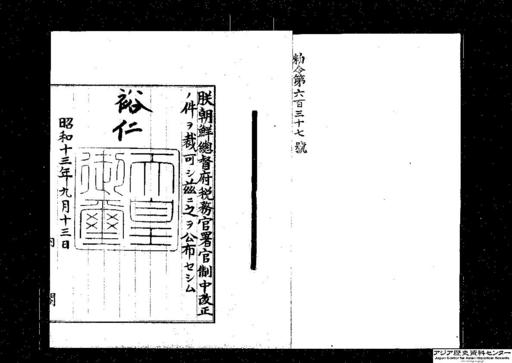 勅令第六百三十七號
朕朝鮮總督府税務官署官制中改正
ノ件ヲ裁可シ茲ニ之ヲ公布セシム
裕仁
天皇御璽
昭和十三年九月十三日
内閣
アジア歴史資料センター
Japan Center for Asian Historical Records